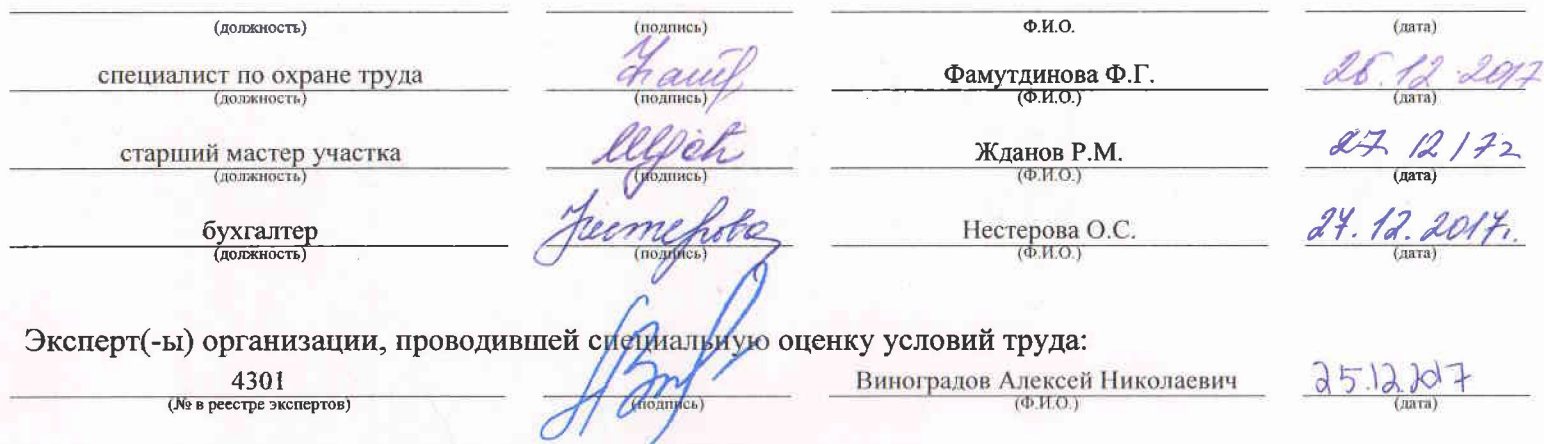 (должность) (подпись) Ф.И.О. (дата)
специалист по охране труда Фамутдинова Ф.Г. 26.12.2017
(должность) (подпись) (Ф.И.О.) (дата)
старший мастер участка Жданов Р.М. 27 12 17г
(должность) (подпись) (Ф.И.О.) (дата)
бухгалтер Нестерова Нестерова О.С. 27.12.2017г.
(должность) (подпись) (Ф.И.О.) (дата)
Эксперт(-ы) организации, проводившей специальную оценку условий труда:
4301 Виноградов Алексей Николаевич 25.12.2017
(№ в реестре экспертов) (подпись) (Ф.И.О.) (дата)